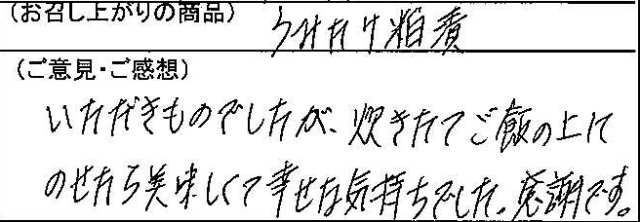 (お召し上がりの商品)
うみたけ粕漬
(ご意見・ご感想)
いただきものでしたが、炊きたてご飯の上に
のせたら美味しくて幸せな気持ちでした。感謝です。